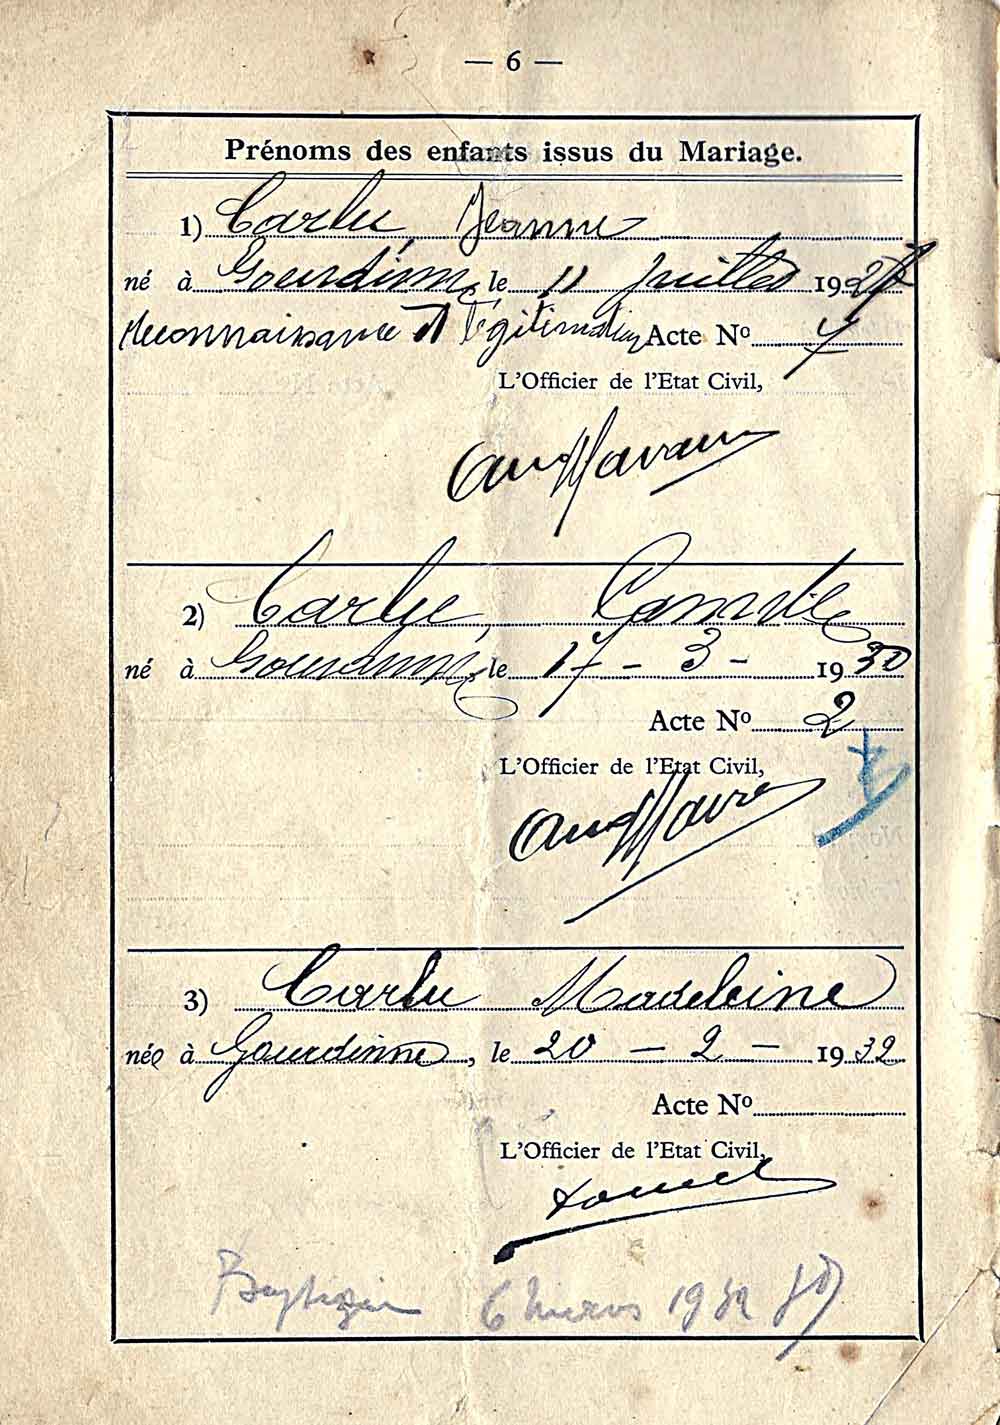 — 6 —
Prénoms des enfants issus du Mariage.
1) Carlu, Jeanne
né à Gourdinne, le 11 Juillet 192
Reconnaissance et légitimation Acte Nº 7
L'Officier de l'Etat Civil,
2) Carlu, Camille
né à Gourdinne, le 17 - 3 - 1930
Acte Nº 2
L'Officier de l'Etat Civil,
3) Carlu Madeleine
née à Gourdinne, le 20 - 2 - 1932
Acte Nº
L'Officier de l'Etat Civil,
6 mars 1932